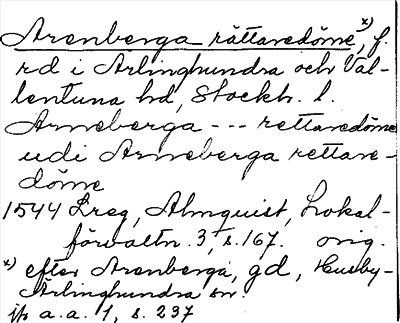 Arenberga rättaredöme x), f.
rd i Ärlinghundra och Val-
lentuna hd, Stockh. l.
Arneberga --- rettaredöme
udi Arneberga rettare-
döme
1544 Lreg, Almquist, Lokal-
förvaltn. 3, s. 167. orig.
x) efter Arenberga, gd, Husby-
Ärlinghundra sn.
jfr a.a. 1, s. 237